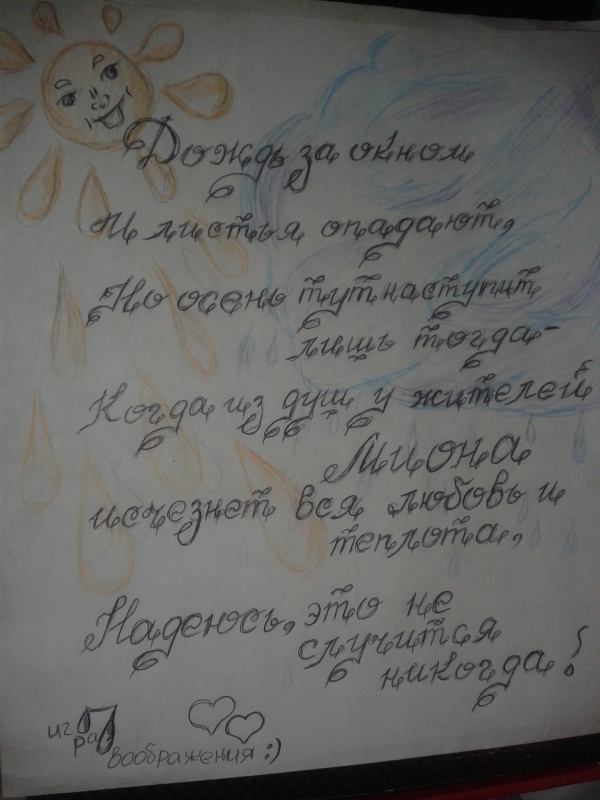 Дождь за окном
И листья опадают,
Но осень тут наступит
лишь тогда-
Когда из душ у жителей
Миона
исчезнет вся любовь и
теплота.
Надеюсь, это не
случится
никогда!
игра
воображения :)